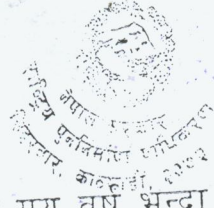 नेपाल सरकार
राष्ट्रिय पुनर्निर्माण प्राधिकरण
काठमाडौं, २०७२
वर्ष भन्दा